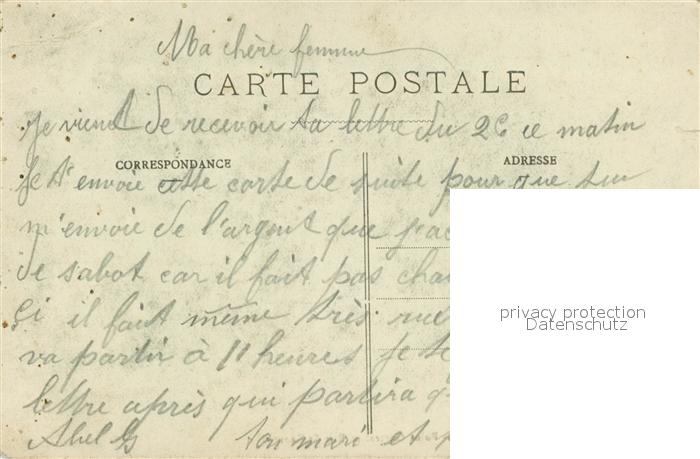 Ma chère femme
CARTE POSTALE
Je vient de recevoir ta lettre du 26 ce matin
CORRESPONDANCE
ADRESSE
Je t'envoie cette carte de suite pour que tu
m'envoie de l'argent que j'ac
de sabot car il fait pas chau
il fait même très
privacy protection
Datenschutz
va partir à 11 heures je te
lettre après qui partira
Abel ton mari et